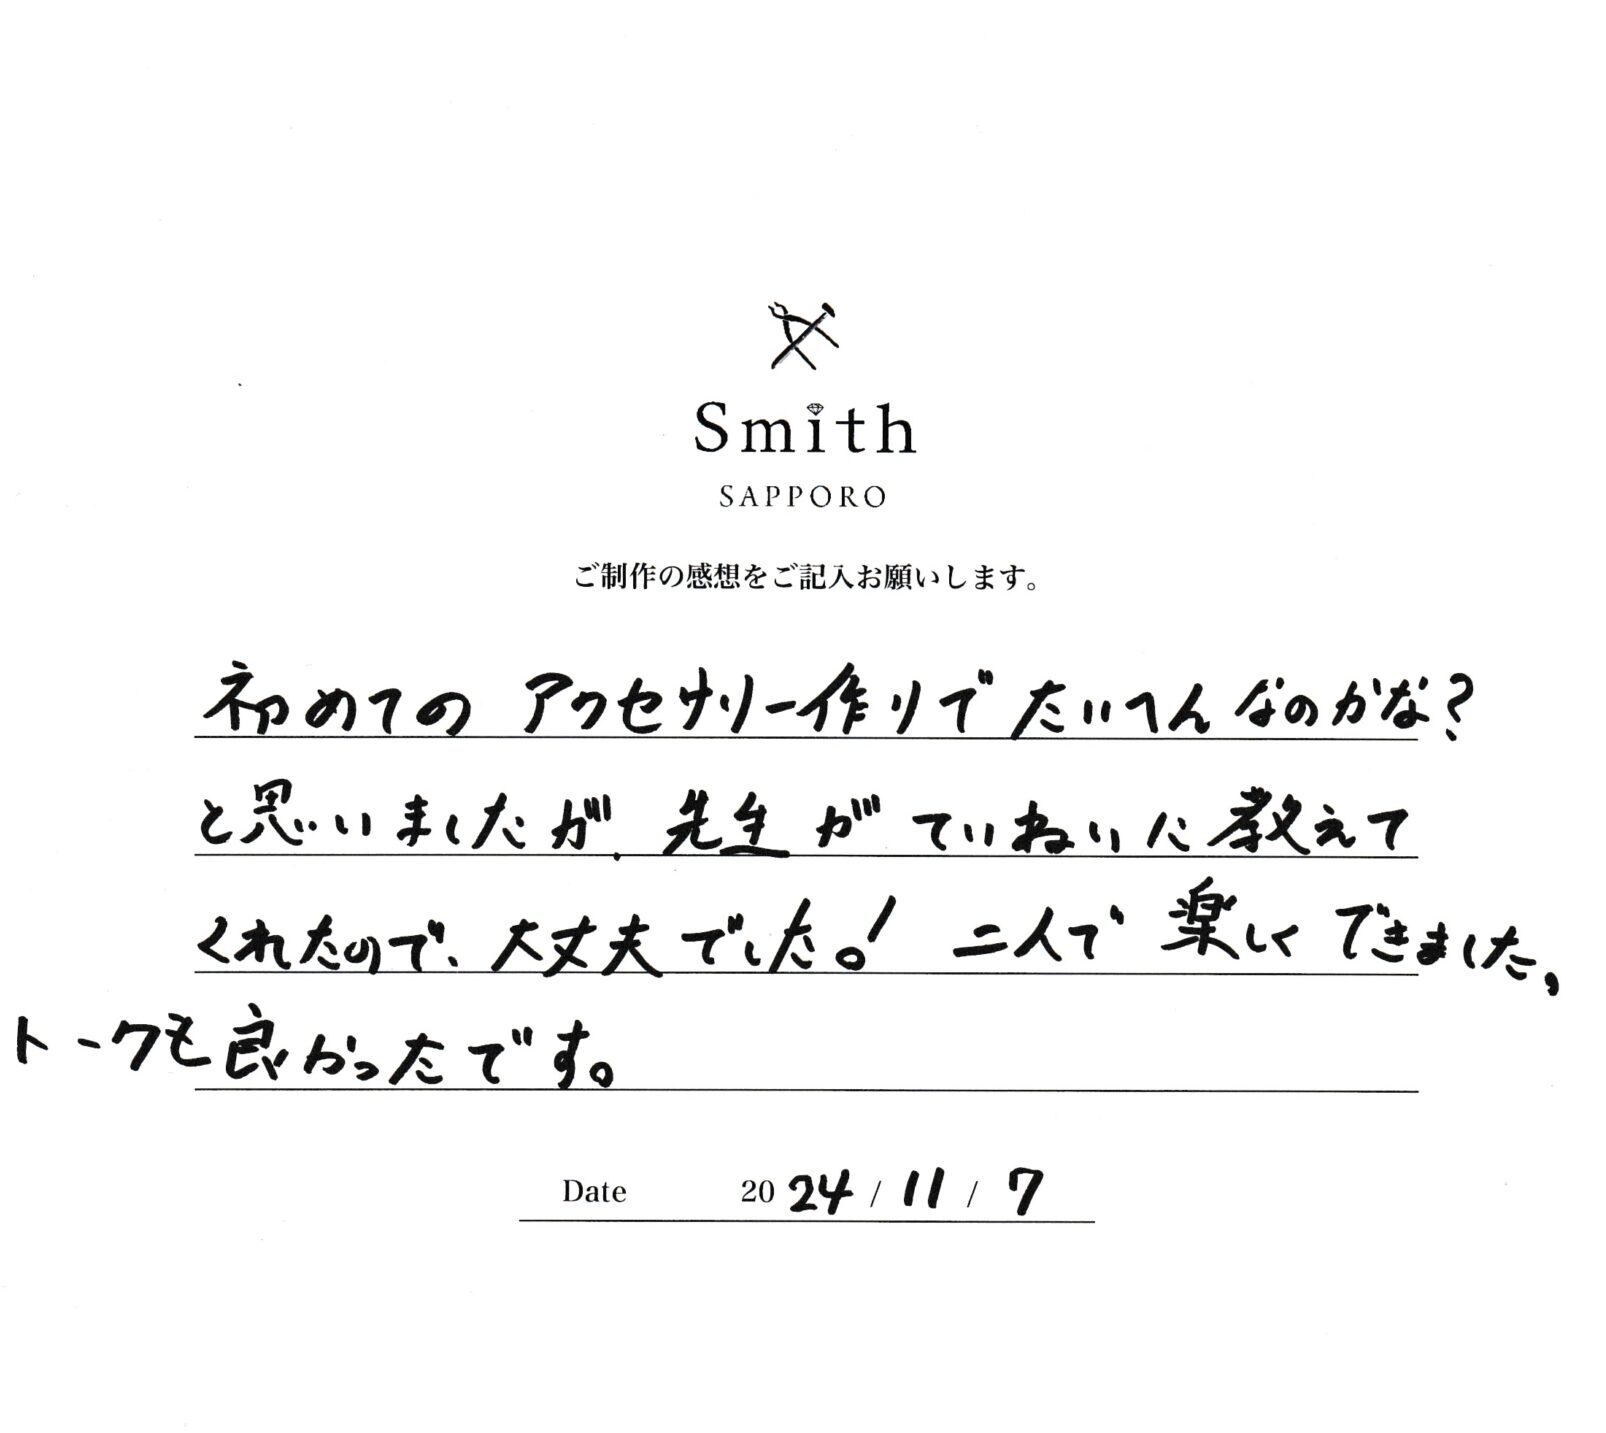 Smith
SAPPORO
ご制作の感想をご記入お願いします。
初めてのアクセサリー作りでたいへんなのかな?
と思いましたが、先生がていねいに教えて
くれたので、大丈夫でした。! 二人で楽しくできました,
トークも良かったです。
Date 2024 / 11 / 7